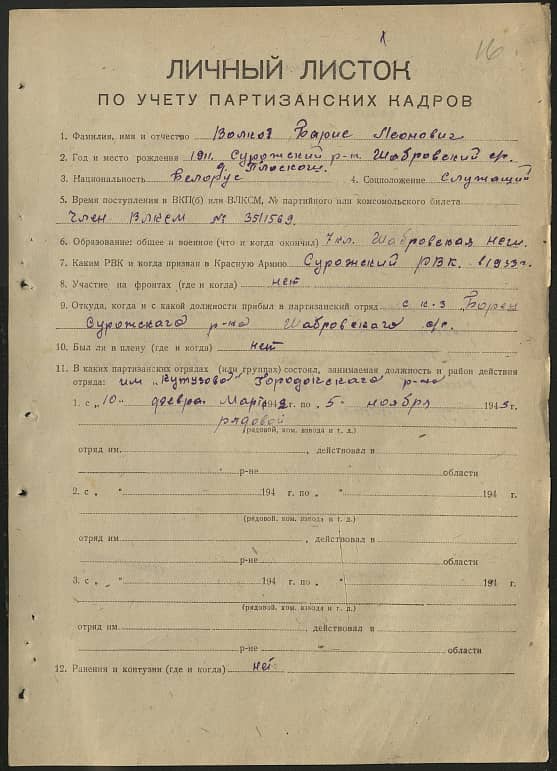 16
ЛИЧНЫЙ ЛИСТОК
ПО УЧЕТУ ПАРТИЗАНСКИХ КАДРОВ
1. Фамилия, имя и отчество Волков Барис Леонович
2. Год и место рождения 1911. Сурожский р-н. Шабровский с/с.
д Плоскош.
3. Национальность Белорус 4. Соцположение Служащий
5. Время поступления в ВКП(б) или ВЛКСМ, № партийного или комсомольского билета
Член ВЛКСМ № 3511569
6. Образование: общее и военное (что и когда окончил) 7 кл. Шабровская
7. Каким РВК и когда призван в Красную Армию Сурожский РВК. в 1933 г.
8. Участие на фронтах (где и когда) нет
9. Откуда, когда и с какой должности прибыл в партизанский отряд с к-з "Борец
Сурожского р-на Шабровского с/с.
10. Был ли в плену (где и когда) нет
11. В каких партизанских отрядах (или группах) состоял, занимаемая должность и район действия
отряда: им "Кутузова" Городокского р-на
1. с „10" Март 1942 г. по „5" ноября 1943 г.
рядовой
(рядовой, ком. взвода и т. д.)
отряд им. , действовал в
р-не области
2. с „ " 194 г. по „ " 194 г.
(рядовой, ком. взвода и т. д.)
отряд им. , действовал в
р-не области
3. с „ " 194 г. по „ " 194 г.
(рядовой, ком. взвода и т. д.)
отряд им. , действовал в
р-не " области
12. Ранения и контузии (где и когда) нет